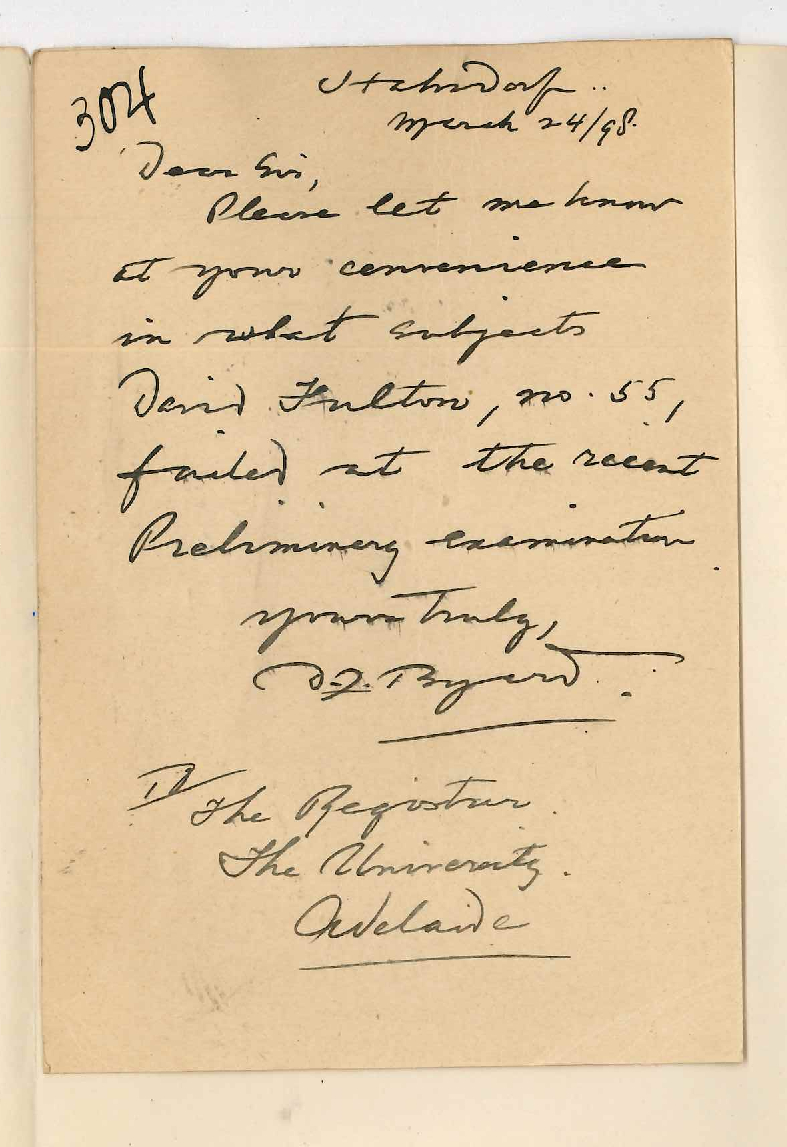 304
Hahndorf..
March 24/98.
Dear Sir,
Please let me know
at your convenience
in what subjects
David Fulton, no. 55,
failed at the recent
Preliminary examination.
yours truly,
D.J. Byard.
The Registrar.
The University.
Adelaide